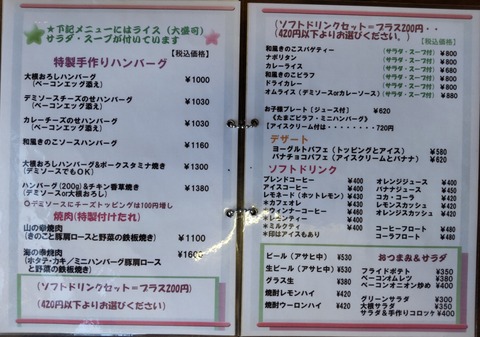 ★下記メニューにはライス（大盛可）
サラダ・スープが付いています
【税込価格】
特製手作りハンバーグ
大根おろしハンバーグ ¥1000
（ベーコンエッグ添え）
デミソースチーズのせハンバーグ ¥1030
（ベーコンエッグ添え）
カレーチーズのせハンバーグ ¥1030
（ベーコンエッグ添え）
和風きのこソースハンバーグ ¥1160
大根おろしハンバーグ&ポークスタミナ焼き ¥1300
（デミソースでもOK）
ハンバーグ（200g）&チキン香草焼き ¥1380
（デミソースor大根おろし）
◎デミソースにチーズトッピングは100円増し
焼肉（特製付けたれ）
山の幸焼肉 ¥1100
（きのこと豚肩ロースと野菜の鉄板焼き）
海の幸焼肉 ¥1600
（ホタテ・カキ/ミニハンバーグ豚肩ロース
と野菜の鉄板焼き）
（ソフトドリンクセット＝プラス200円）
（420円以下よりお選びください）
（ソフトドリンクセット＝プラス200円・・
（420円以下よりお選びください。）
【税込価格】
和風きのこスパゲティー （サラダ・スープ付） ¥800
ナポリタン （サラダ・スープ付） ¥800
カレーライス （サラダ・スープ付） ¥680
和風きのこピラフ （サラダ・スープ付） ¥800
ドライカレー （サラダ・スープ付） ¥800
オムライス（デミソースorカレーソース）（サラダ・スープ付） ¥880
お子様プレート［ジュース付］ ¥620
《たまごピラフ・ミニハンバーグ》
（アイスクリーム付は・・・・・・・・720円）
デザート
ヨーグルトパフェ（トッピングとアイス） ¥580
バナチョコパフェ（アイスクリームとバナナ） ¥620
ソフトドリンク
ブレンドコーヒー ¥400 オレンジジュース ¥400
アイスコーヒー ¥400 バナナジュース ¥450
レモネード（ホットレモン） ¥430 コカ・コーラ ¥420
＊カフェオレ ¥450 レモンスカッシュ ¥420
＊ウィンナーコーヒー ¥450 オレンジスカッシュ ¥420
＊レモンティー ¥400
＊ミルクティ ¥400 コーヒーフロート ¥480
＊印はアイスもあり コーラフロート ¥480
ビール（アサヒ中） ¥530
生ビール（アサヒ中） ¥530
グラス生 ¥380
焼酎レモンハイ ¥420
焼酎ウーロンハイ ¥420
おつまみ&サラダ
フライドポテト ¥350
ベーコンオムレツ ¥380
ベーコンオニオン炒め ¥400
グリーンサラダ ¥350
大根サラダ ¥350
サラダ&手作りコロッケ ¥400